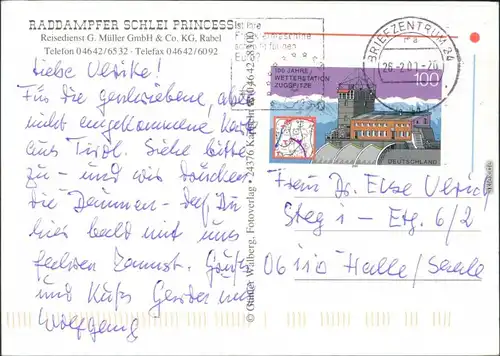 RADDAMPFER SCHLEI PRINCESS
Reisedienst G. Müller GmbH & Co. KG, Rabel
Telefon 04642/6532 - Telefax 04642/6092
Liebe Ulrike!
Für die geschriebene, aber
nicht angekommene Karte
aus Tirol. Siehe bitte
zu - und wir drücken
die Daumen - daß Du
hier bald mit uns
Gruß
und Kuß Gerda und
Wolfgang
© Günter Walberg, Fotoverlag · 24376 Kappeln
ist Ihre
BRIEFZENTRUM 24
100 JAHRE
WETTERSTATION
ZUGSPITZE
100
DEUTSCHLAND
Frau Dr. Elke
Steg 1 - Etg. 6/2
06110 Halle/Saale